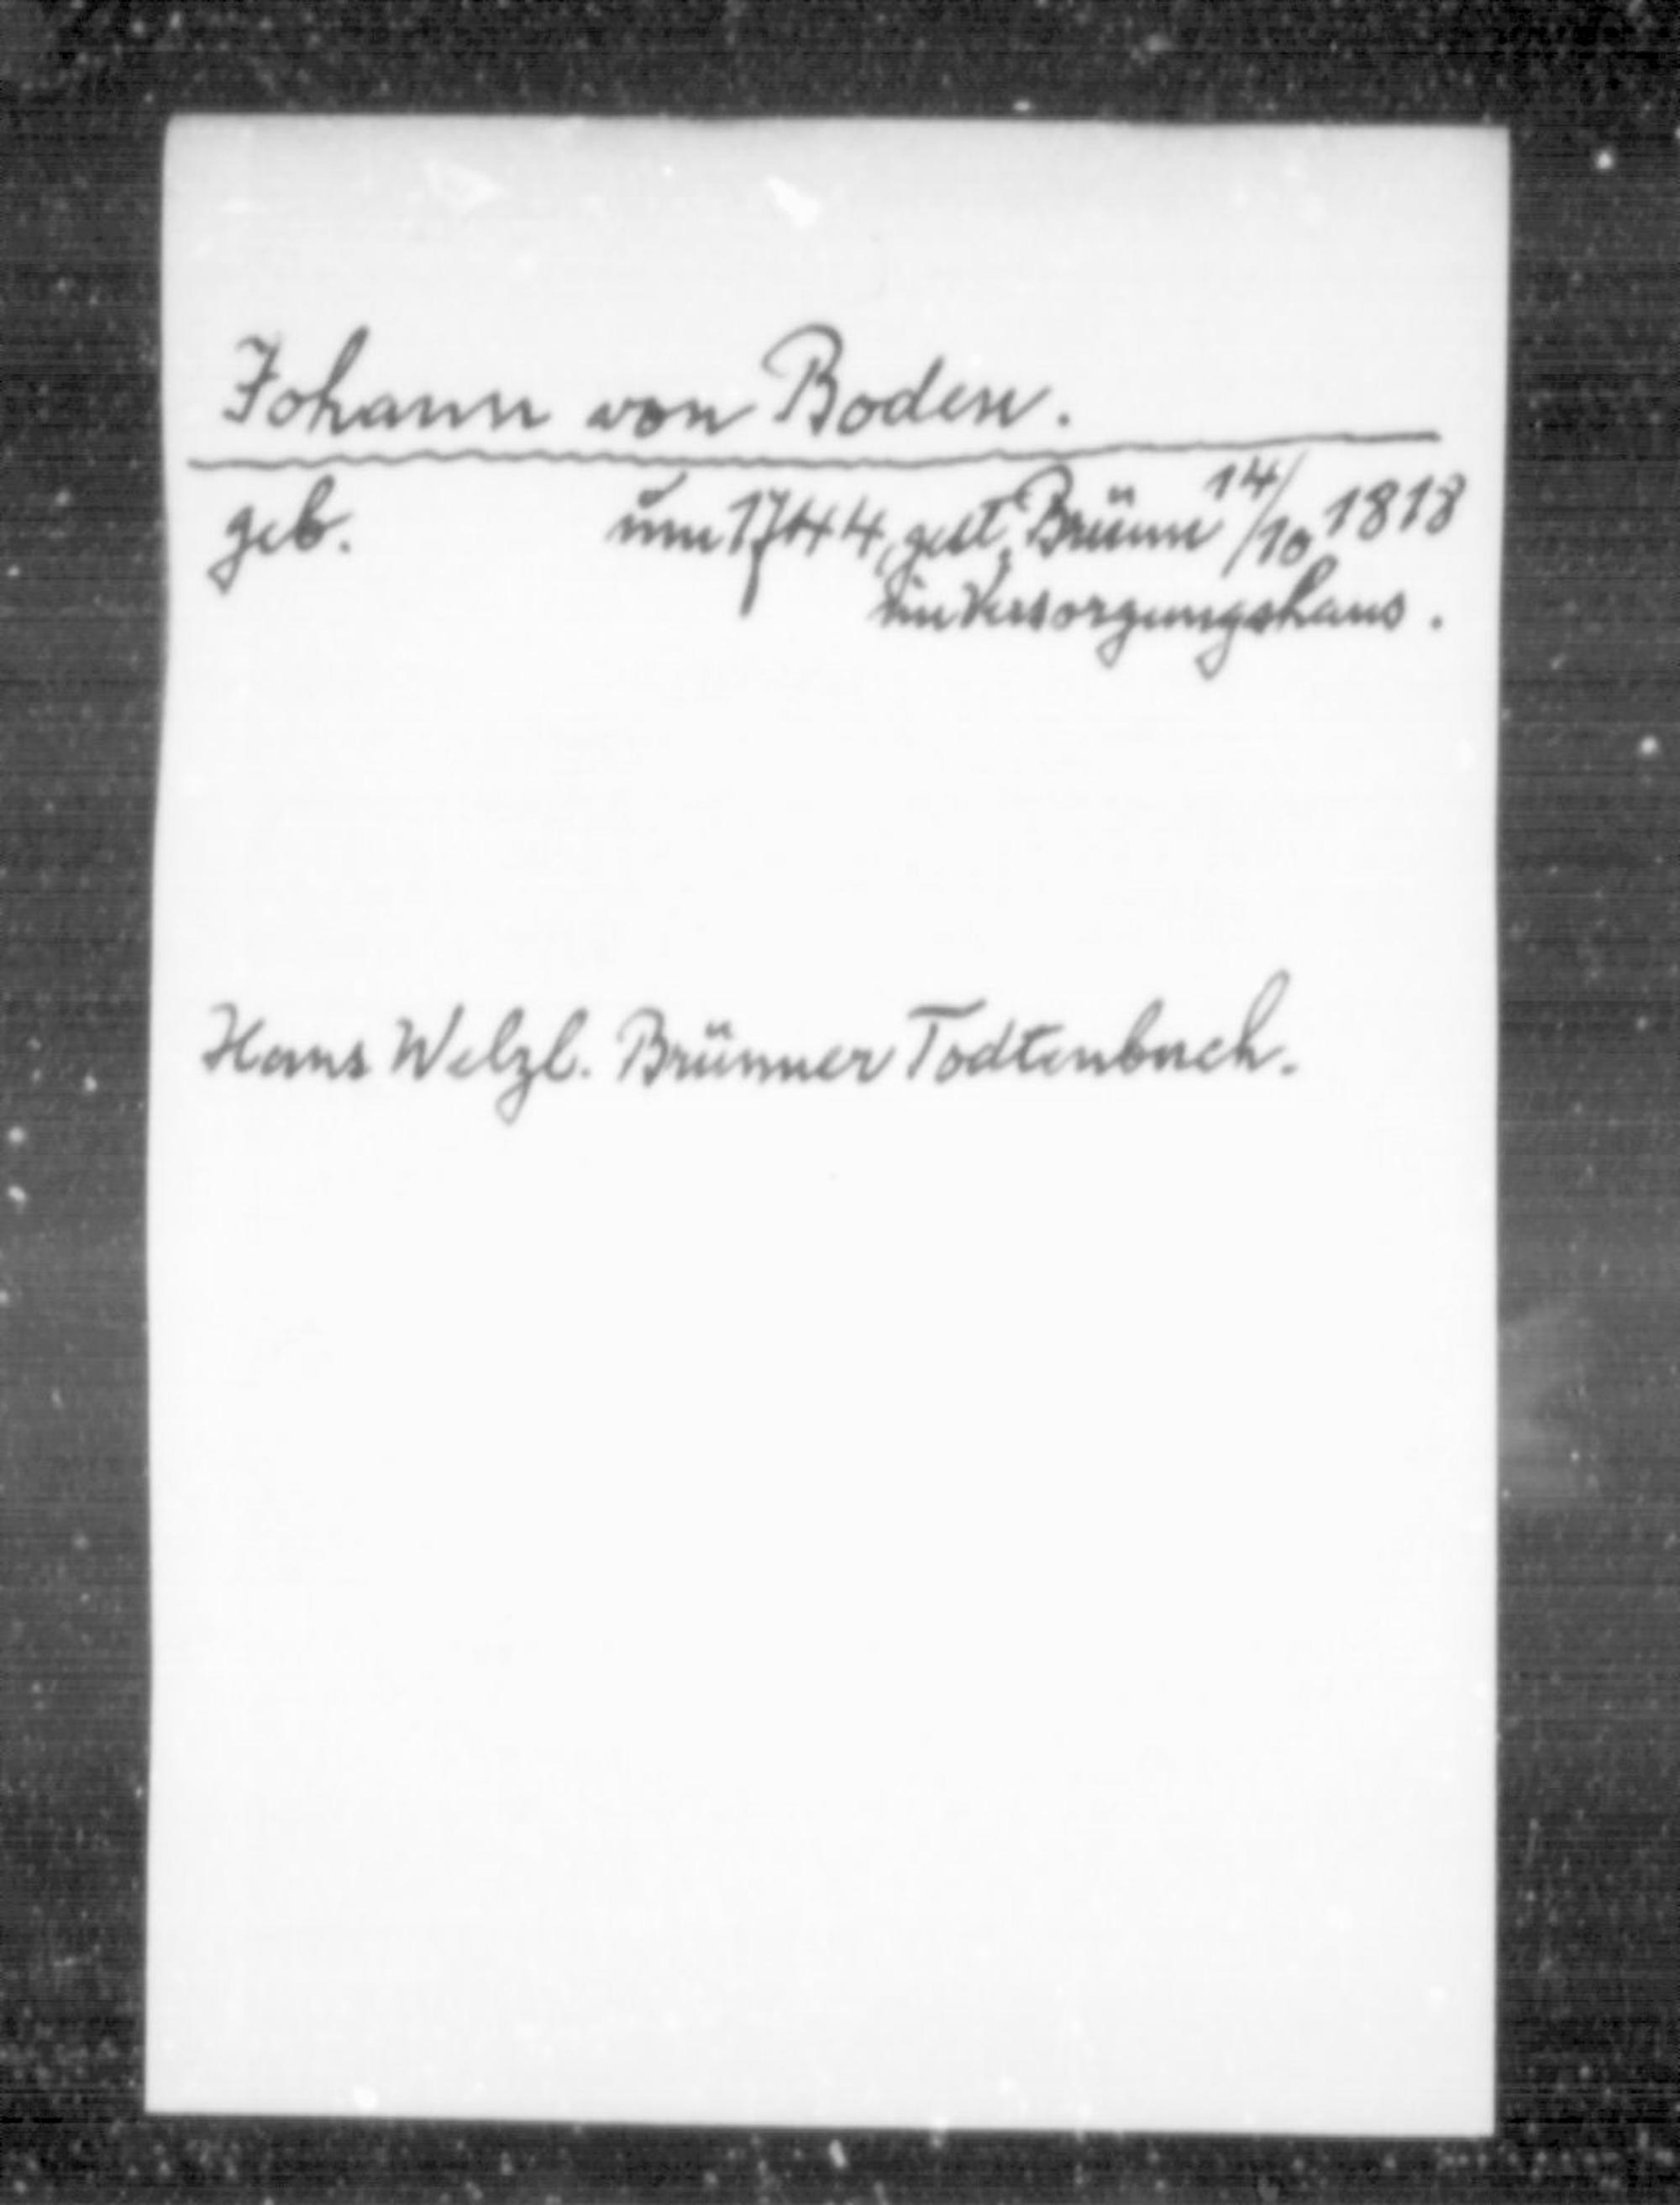 Johann von Boden.
geb. um 1744, gest. Brünn 14/10 1818
im Versorgungshaus.
Hans Welzl. Brünner Todtenbuch.